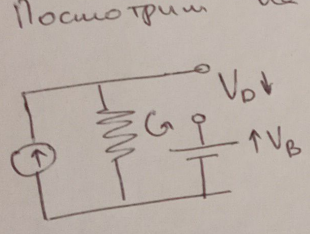 Посмотрим
V_D ↓
G
↑ V_B